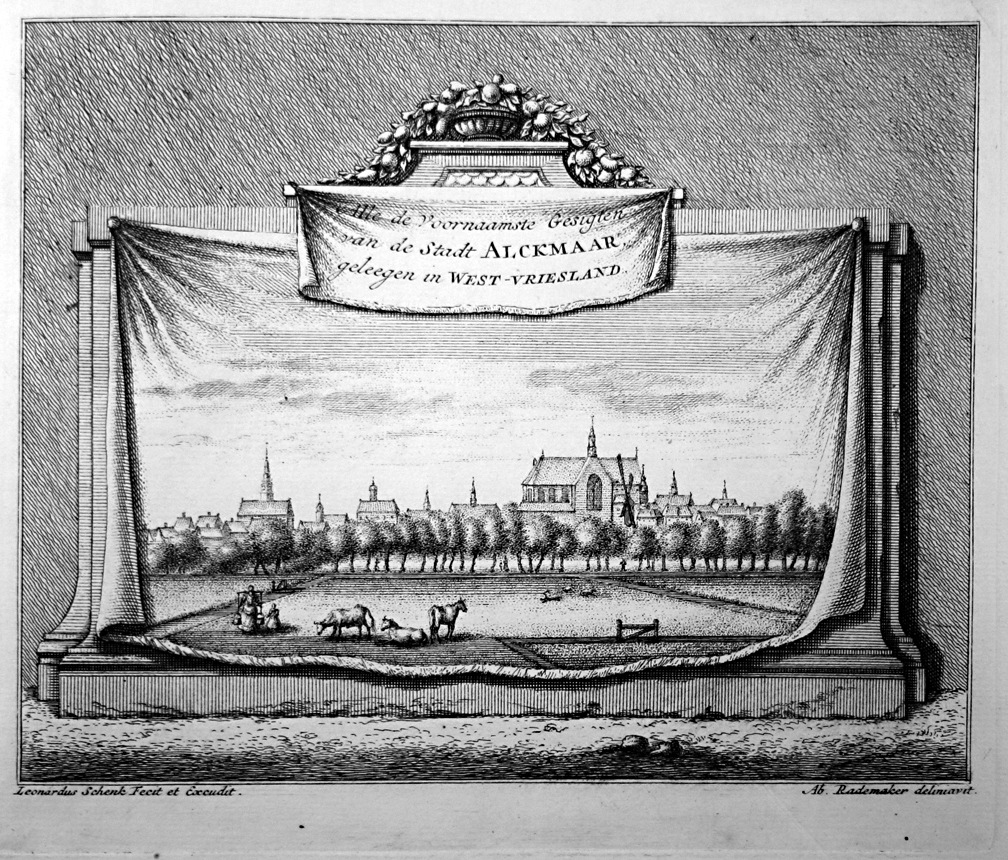 Alle de Voornaamste Gesigten
van de Stadt ALCKMAAR,
geleegen in WEST-VRIESLAND.
Leonardus Schenk Fecit et Excudit.
Ab. Rademaker deliniavit.